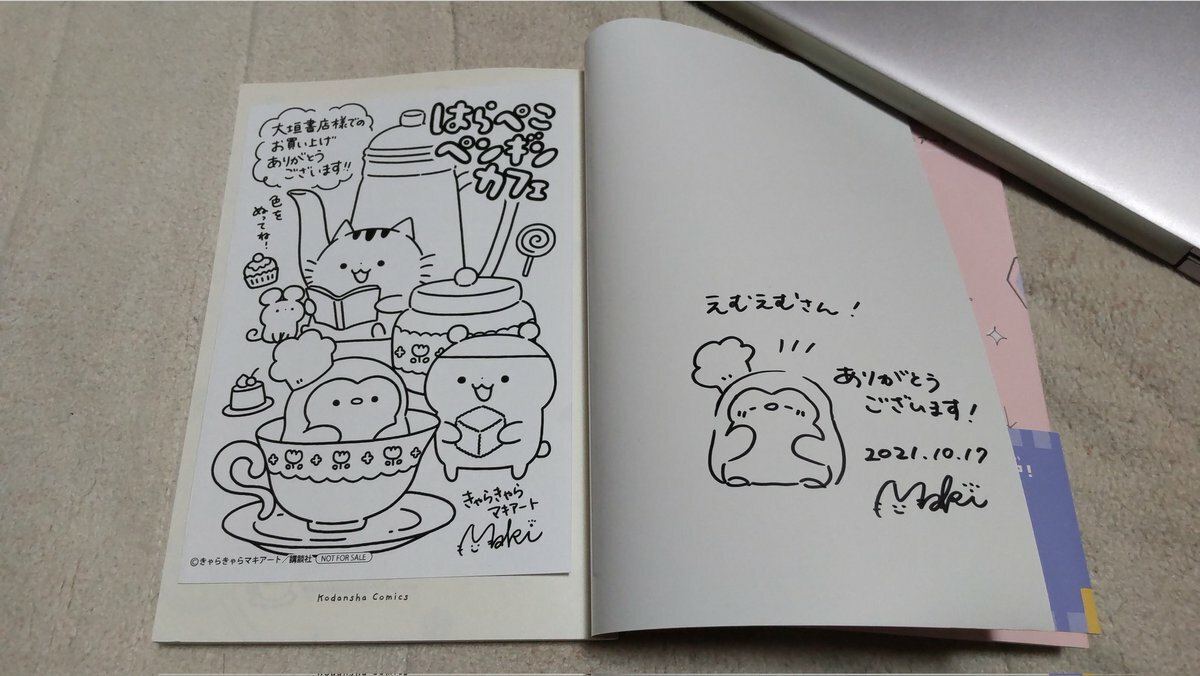 大垣書店様での
お買い上げ
ありがとう
ございます!!
色を
ぬってね!
はらぺこ
ペンギン
カフェ
きゃらきゃら
マキアート
Maki
©きゃらきゃらマキアート/講談社 NOT FOR SALE
Kodansha Comics
えむえむさん!
ありがとう
ございます!
2021.10.17
Maki